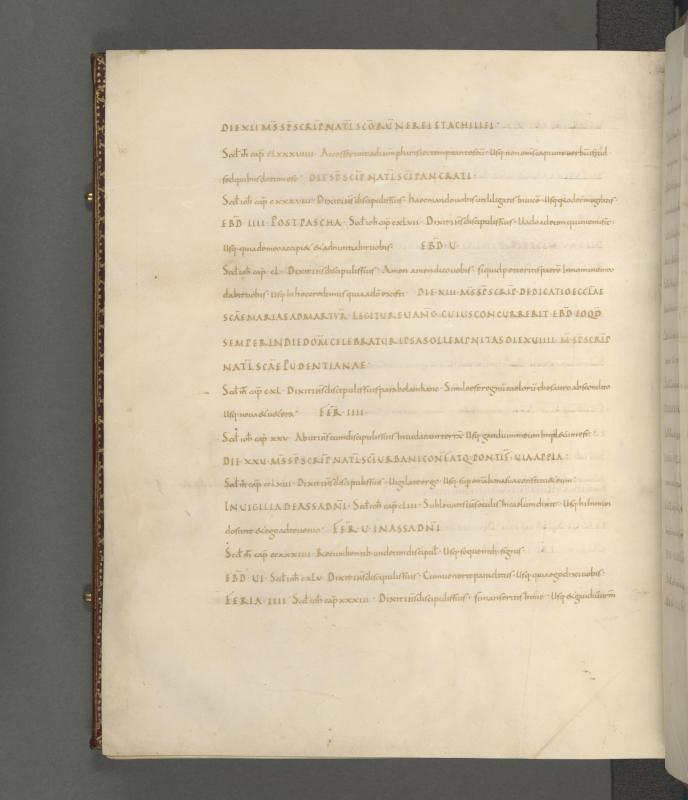 DIE XII M̅S̅ S̅P̅S̅CRIP̅ NAT̅L̅ SC̅ORU̅ NEREI ET ACHILLEI ·
Scd̅ m̅t cap̅ CLXXXVIIII · Accesserunt ad
sed quibus datum est · DIE S̅P̅ SCIP̅ NAT̅L̅ SC̅I PANCRATI ·
Scd̅ ioh̅ cap̅ CXXXVIII · Dixit ih̅s discipulis suis · haec mando vobis ut diligatis invicem · Usq;
EB̅D̅ IIII · POST PASCHA · Scd̅ ioh̅ cap̅ CXLVII · Dixit ih̅s discipulis suis · Vado ad eum qui me misit ·
Usq; quia de meo accipiet & adnuntiabit vobis · EB̅D̅ V
Scd̅ ioh̅ cap̅ CL · Dixit ih̅s discipulis suis · Amen amen dico vobis · si quid petieritis patre̅ in nomine meo
dabit vobis · Usq; in hoc credimus quia a do̅ existi · DIE XIII · M̅S̅ S̅P̅S̅CRIP̅ DEDICATIO ECC̅L̅AE
SC̅AE MARIAE AD MARTYR · LEGITUR EUANG̅ · CUIUS CONCURRERIT EB̅D̅ EO Q̅D̅
SEMPER IN DIE DOM̅ CELEBRATUR IPSA SOLLEMPNITAS DIE XVIIII · M̅ S̅P̅S̅CRIP̅
NAT̅L̅ SC̅AE PUDENTIANAE ·
Scd̅ m̅t cap̅ CXL · Dixit ih̅s discipulis suis parabolam hanc · Simile est regnu̅ caeloru̅ thesauro abscondito
Usq; nova & vetera · FER̅ IIII ·
Scd̅ ioh̅ cap̅ XXV · Abiit ih̅s cum discipulis suis in iudaeam terra̅ · Usq; gaudium meum impletum est ·
DIE · XXV · M̅S̅ S̅P̅S̅CRIP̅ NAT̅L̅ SC̅I URBANI CONF̅ ATQ· PONTIF̅ · VIA APPIA ·
Scd̅ m̅t cap̅ CCLXIII · Dixit ih̅s discipulis suis · Vigilate ergo · Usq; super omnia bona sua constituet eum ·
IN VIGILIA DE ASSA DN̅I · Scd̅ ioh̅ cap̅ CLIII · Sublevatis ih̅s oculis in caelum dixit · Usq; hi in mundo
sunt & ego ad te venio · FER̅ · V · IN ASSA DN̅I
Scd̅ m̅ cap̅ CCXXXIIII · Recumbentib; undecim discipul̅ · Usq; sequentib; signis ·
EB̅D̅ · VI · Scd̅ ioh̅ CXLV · Dixit ih̅s discipulis suis · Cum venerit paraclitus · Usq; quia ego dixi vobis ·
FERIA · IIII · Scd̅ ioh̅ cap̅ XXXIII · Dixit ih̅s discipulis suis · si manseritis in me · Usq; & gaudiu̅ vr̅m